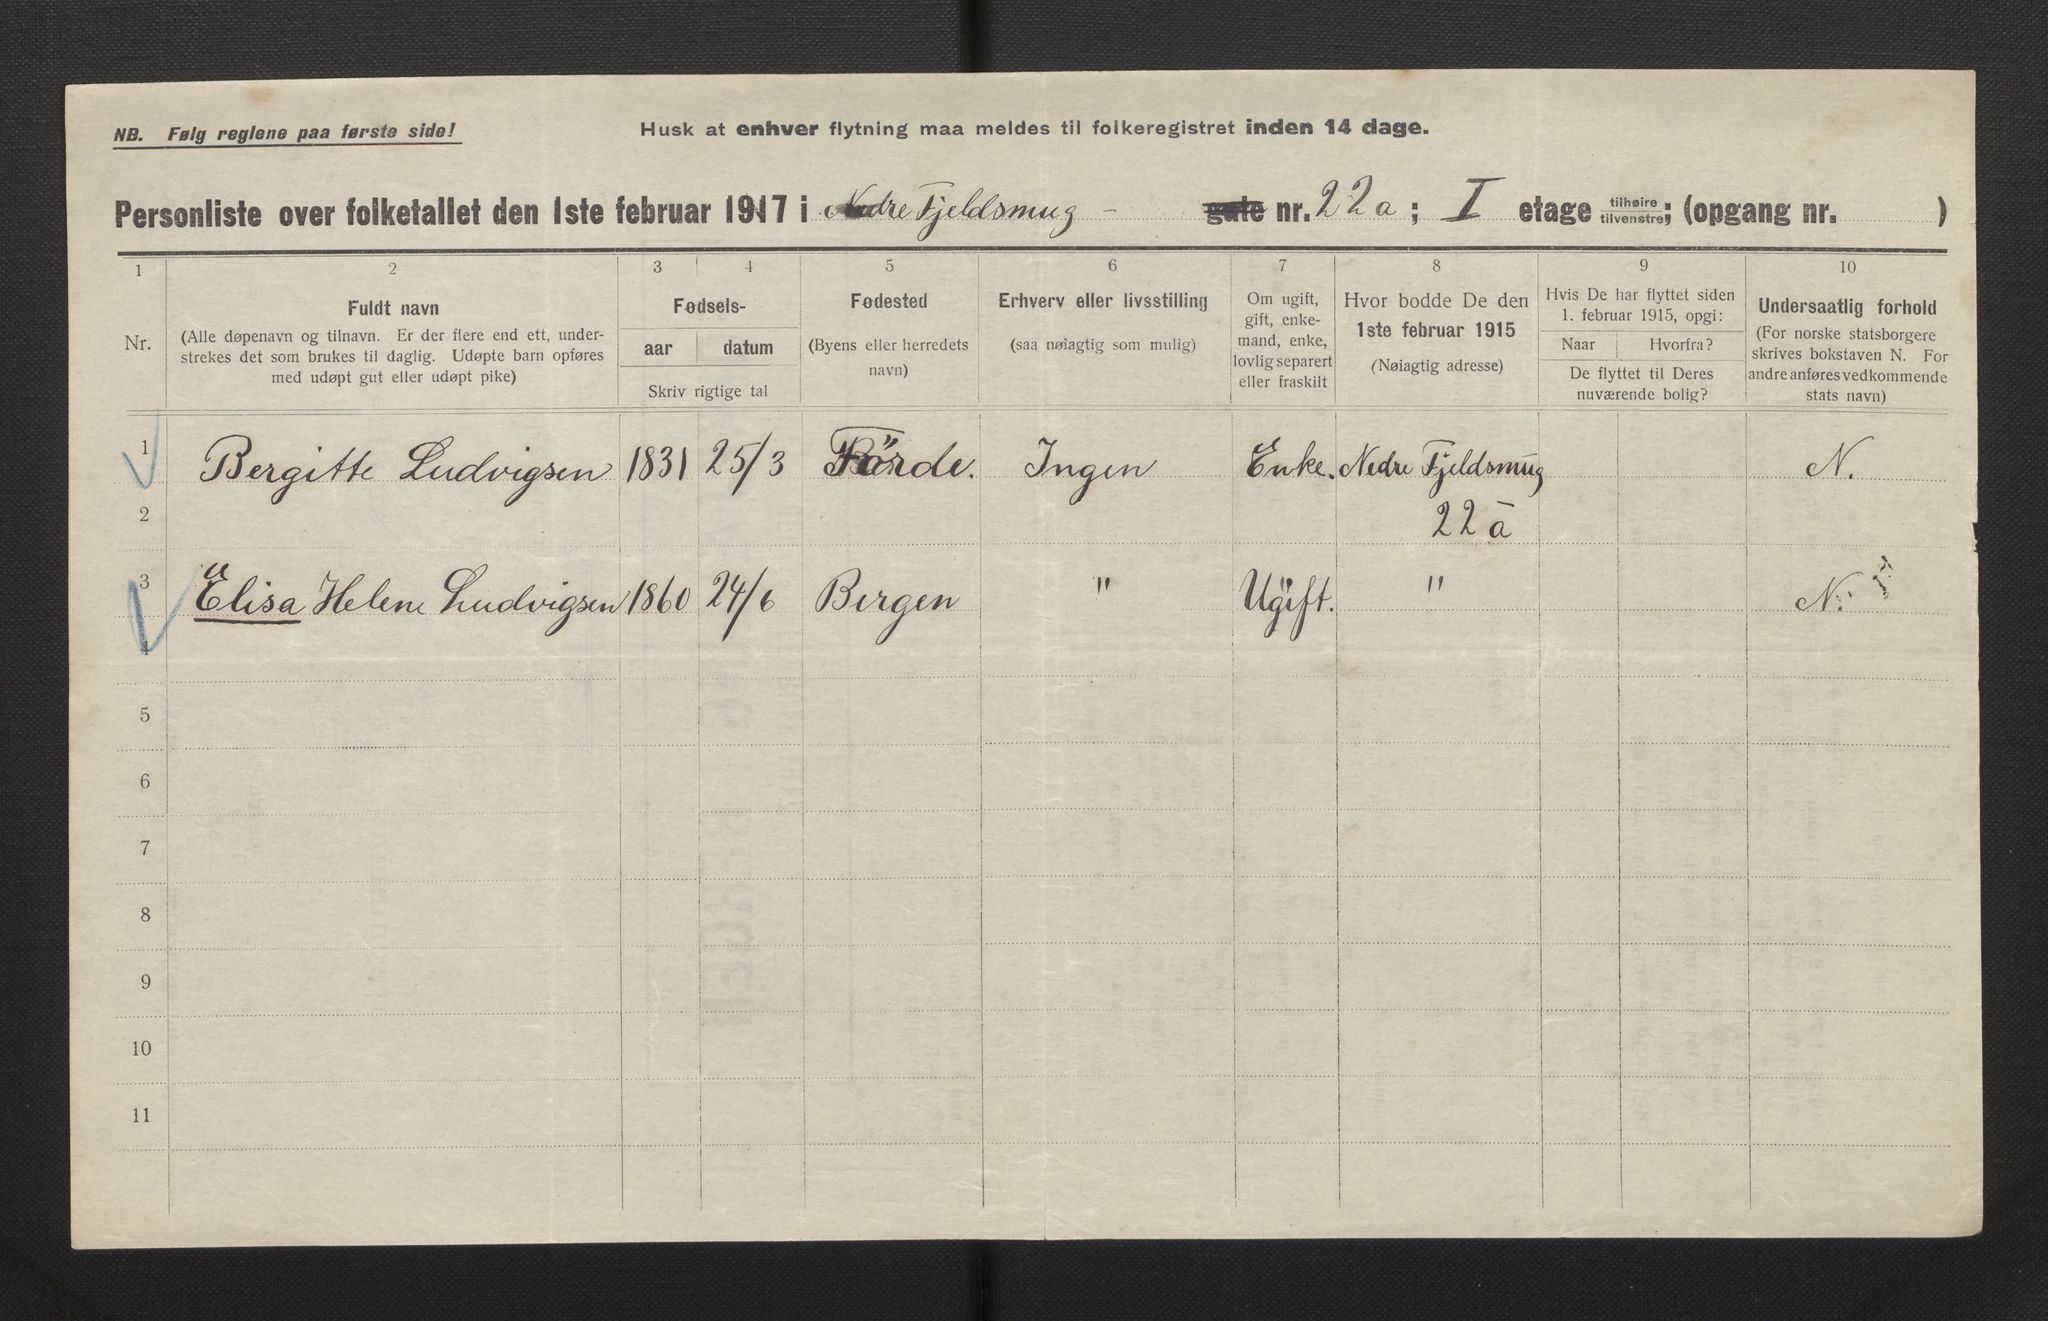 NB. Følg reglene paa første side!
Husk at enhver flytning maa meldes til folkeregistret inden 14 dage.
Personliste over folketallet den 1ste februar 1917 i Nedre Fjeldsmug - gate nr. 22a; I etage tilhøire tilvenstre; (opgang nr. )
1 2 3 4 5 6 7 8 9 10
Nr.
Fuldt navn
(Alle døpenavn og tilnavn. Er der flere end ett, under-
strekes det som brukes til daglig. Udøpte barn opføres
med udøpt gut eller udøpt pike)
Fødsels-
aar datum
Skriv rigtige tal
Fødested
(Byens eller herredets
navn)
Erhverv eller livsstilling
(saa nøiagtig som mulig)
Om ugift,
gift, enke-
mand, enke,
lovlig separert
eller fraskilt
Hvor bodde De den
1ste februar 1915
(Nøiagtig adresse)
Hvis De har flyttet siden
1. februar 1915, opgi:
Naar Hvorfra?
De flyttet til Deres
nuværende bolig?
Undersaatlig forhold
(For norske statsborgere
skrives bokstaven N. For
andre anføres vedkommende
stats navn)
1 Bergitte Ludvigsen 1831 25/3 Förde. Ingen Enke. Nedre Fjeldsmug N.
2 22a
3 Elisa Helene Ludvigsen 1860 24/6 Bergen " Ugift. " N.
4
5
6
7
8
9
10
11